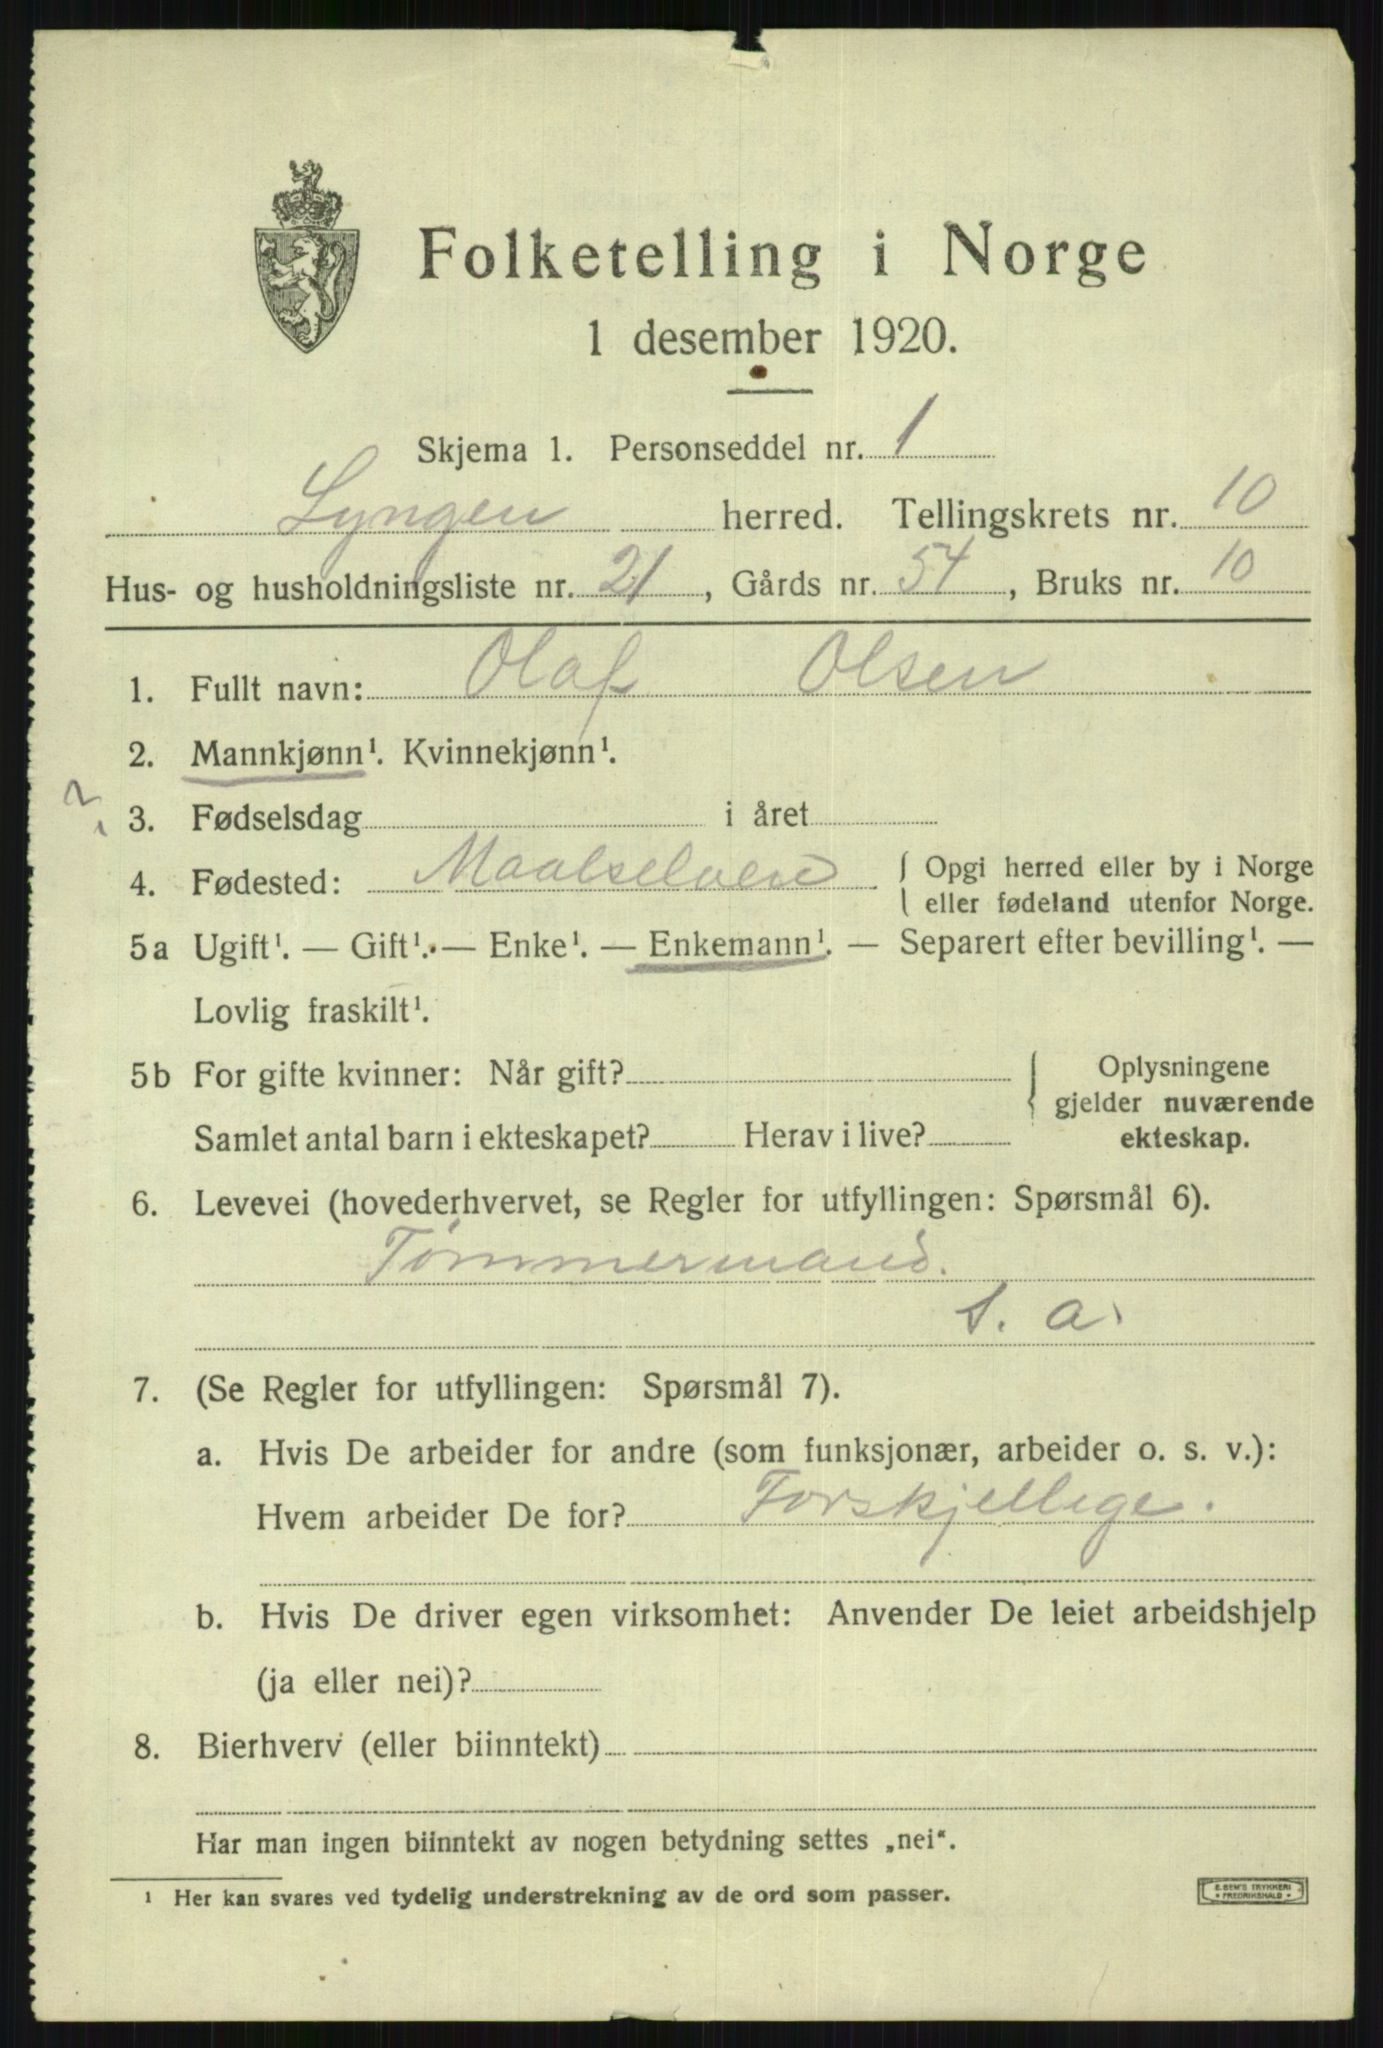 Folketelling i Norge
1 desember 1920.
Skjema 1. Personseddel nr. 1
Lyngen herred. Tellingskrets nr. 10
Hus- og husholdningsliste nr. 21, Gårds nr. 54, Bruks nr. 10
1. Fullt navn: Olaf Olsen
2. Mannkjønn¹. Kvinnekjønn¹.
? 3. Fødselsdag i året
4. Fødested: Maalselven { Opgi herred eller by i Norge
eller fødeland utenfor Norge.
5a Ugift¹. — Gift¹. — Enke¹. — Enkemann¹. — Separert efter bevilling¹. —
Lovlig fraskilt¹.
5b For gifte kvinner: Når gift? { Oplysningene
gjelder nuværende
Samlet antal barn i ekteskapet? Herav i live? ekteskap.
6. Levevei (hovederhvervet, se Regler for utfyllingen: Spørsmål 6).
Tømmermand.
s. a.
7. (Se Regler for utfyllingen: Spørsmål 7).
a. Hvis De arbeider for andre (som funksjonær, arbeider o. s. v.):
Hvem arbeider De for? Forskjellige.
b. Hvis De driver egen virksomhet: Anvender De leiet arbeidshjelp
(ja eller nei)?
8. Bierhverv (eller biinntekt)
Har man ingen biinntekt av nogen betydning settes „nei“.
¹ Her kan svares ved tydelig understrekning av de ord som passer.
E. SEM'S TRYKKERI
FREDRIKSHALD